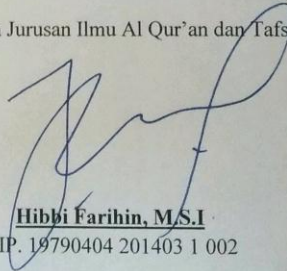 Jurusan Ilmu Al Qur’an dan Tafs
Hibbi Farihin, M.S.I
IP. 19790404 201403 1 002